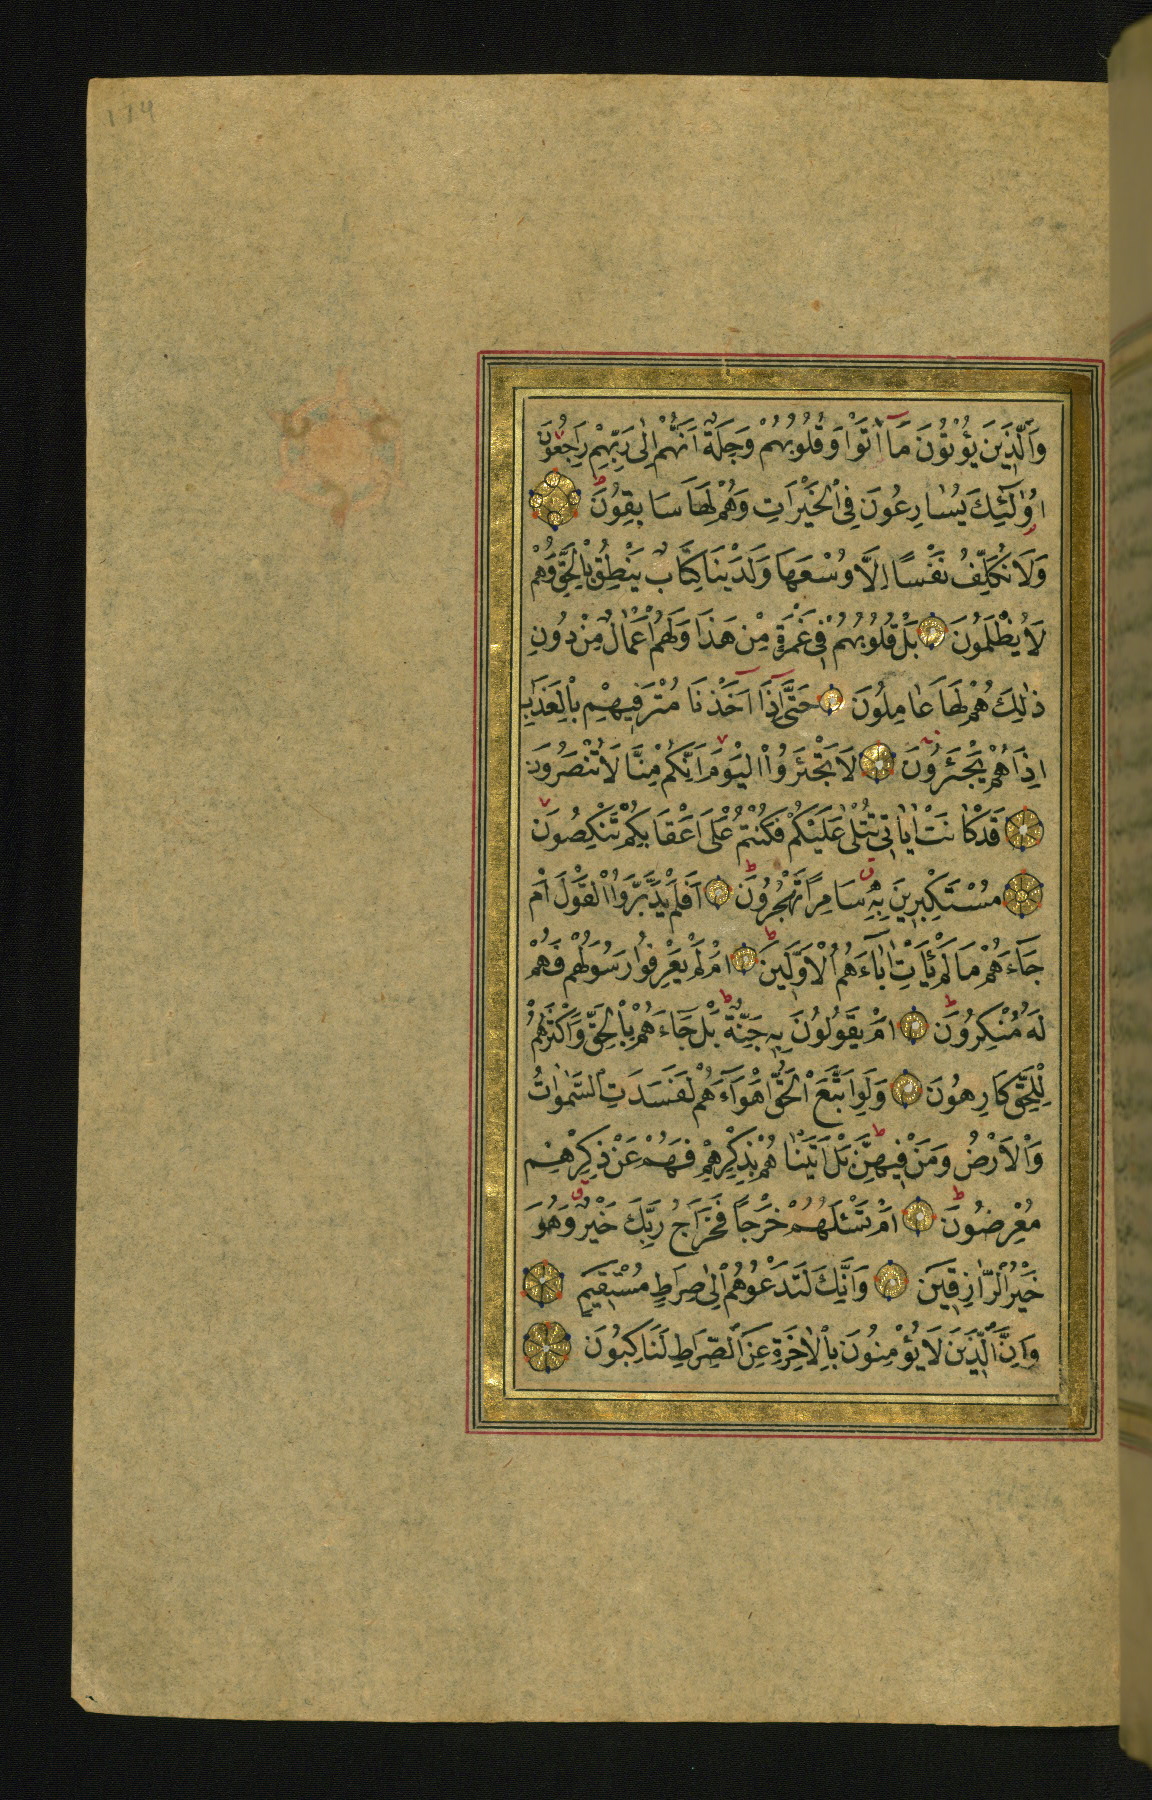 174
وَالَّذِينَ يُؤْتُونَ مَآ اٰتَوْا وَقُلُوبُهُمْ وَجِلَةٌ اَنَّهُمْ اِلٰى رَبِّهِمْ رَاجِعُونَ
اُولٰٓئِكَ يُسَارِعُونَ فِى الْخَيْرَاتِ وَهُمْ لَهَا سَابِقُونَ
وَلَا نُكَلِّفُ نَفْسًا اِلَّا وُسْعَهَا وَلَدَيْنَا كِتَابٌ يَنْطِقُ بِالْحَقِّ وَهُمْ
لَا يُظْلَمُونَ بَلْ قُلُوبُهُمْ فِى غَمْرَةٍ مِنْ هَذَا وَلَهُمْ اَعْمَالٌ مِنْ دُونِ
ذٰلِكَ هُمْ لَهَا عَامِلُونَ حَتَّٓى اِذَٓا اَخَذْنَا مُتْرَفِيهِمْ بِالْعَذَابِ
اِذَا هُمْ يَجْـَٔرُونَ لَا تَجْـَٔرُوا الْيَوْمَ اِنَّكُمْ مِنَّا لَا تُنْصَرُونَ
قَدْ كَانَتْ اٰيَاتِى تُتْلٰى عَلَيْكُمْ فَكُنْتُمْ عَلٰى اَعْقَابِكُمْ تَنْكِصُونَ
مُسْتَكْبِرِينَ بِهِ سَامِرًا تَهْجُرُونَ اَفَلَمْ يَدَّبَّرُوا الْقَوْلَ اَمْ
جَاءَهُمْ مَا لَمْ يَأْتِ اٰبَاءَهُمُ الْاَوَّلِينَ اَمْ لَمْ يَعْرِفُوا رَسُولَهُمْ فَهُمْ
لَهُ مُنْكِرُونَ اَمْ يَقُولُونَ بِهِ جِنَّةٌ بَلْ جَاءَهُمْ بِالْحَقِّ وَاَكْثَرُهُمْ
لِلْحَقِّ كَارِهُونَ وَلَوِ اتَّبَعَ الْحَقُّ اَهْوَاءَهُمْ لَفَسَدَتِ السَّمٰوَاتُ
وَالْاَرْضُ وَمَنْ فِيهِنَّ بَلْ اَتَيْنَاهُمْ بِذِكْرِهِمْ فَهُمْ عَنْ ذِكْرِهِمْ
مُعْرِضُونَ اَمْ تَسْـَٔلُهُمْ خَرْجًا فَخَرَاجُ رَبِّكَ خَيْرٌ وَهُوَ
خَيْرُ الرَّازِقِينَ وَاِنَّكَ لَتَدْعُوهُمْ اِلٰى صِرَاطٍ مُسْتَقِيمٍ
وَاِنَّ الَّذِينَ لَا يُؤْمِنُونَ بِالْاٰخِرَةِ عَنِ الصِّرَاطِ لَنَاكِبُونَ